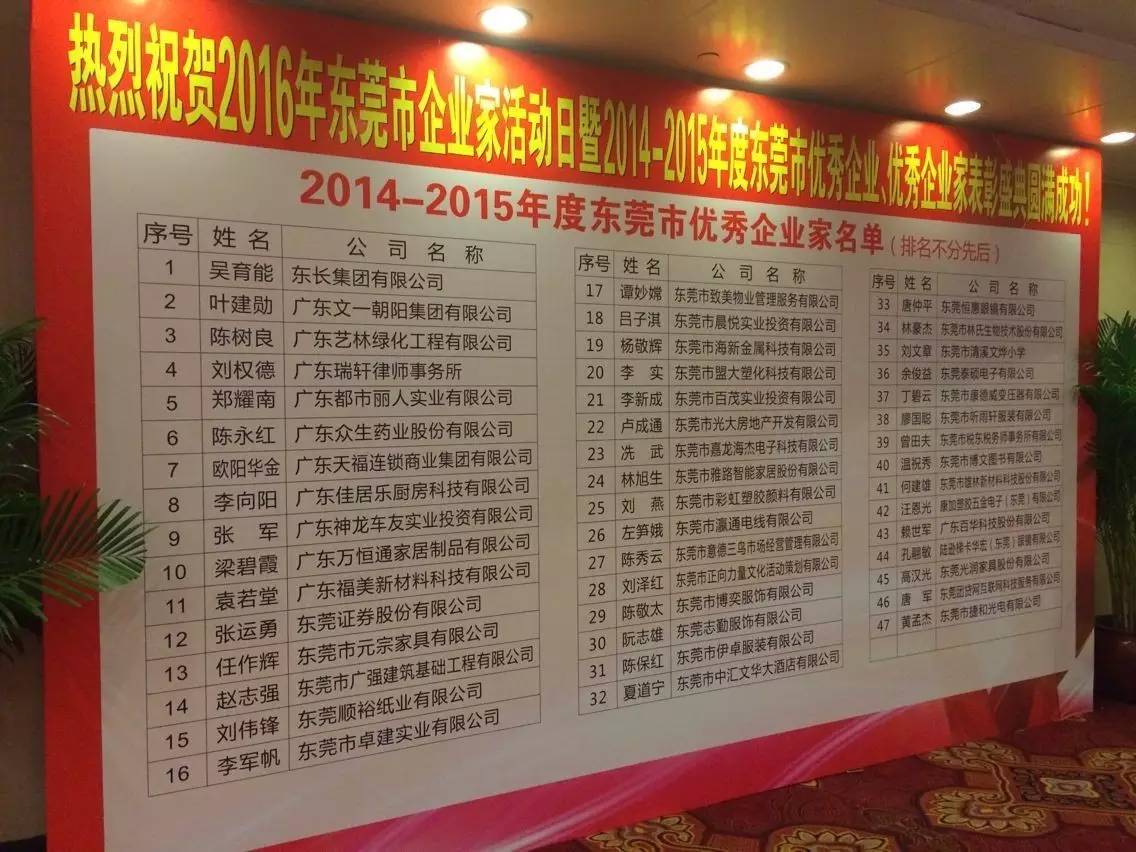 热烈祝贺2016年东莞市企业家活动日暨2014-2015年度东莞市优秀企业、优秀企业家表彰盛典圆满成功！
2014-2015年度东莞市优秀企业家名单（排名不分先后）
序号 姓名 公司名称
1 吴育能 东长集团有限公司
2 叶建勋 广东文一朝阳集团有限公司
3 陈树良 广东艺林绿化工程有限公司
4 刘权德 广东瑞轩律师事务所
5 郑耀南 广东都市丽人实业有限公司
6 陈永红 广东众生药业股份有限公司
7 欧阳华金 广东天福连锁商业集团有限公司
8 李向阳 广东佳居乐厨房科技有限公司
9 张军 广东神龙车友实业投资有限公司
10 梁碧霞 广东万恒通家居制品有限公司
11 袁若堂 广东福美新材料科技有限公司
12 张运勇 东莞证券股份有限公司
13 任作辉 东莞市元宗家具有限公司
14 赵志强 东莞市广强建筑基础工程有限公司
15 刘伟锋 东莞顺裕纸业有限公司
16 李军帆 东莞市卓建实业有限公司
序号 姓名 公司名称
17 谭妙嫦 东莞市致美物业管理服务有限公司
18 吕子淇 东莞市晨悦实业投资有限公司
19 杨敬辉 东莞市海新金属科技有限公司
20 李实 东莞市盟大塑化科技有限公司
21 李新成 东莞市百茂实业投资有限公司
22 卢成通 东莞市光大房地产开发有限公司
23 冼武 东莞市嘉龙海杰电子科技有限公司
24 林旭生 东莞市雅路智能家居股份有限公司
25 刘燕 东莞市彩虹塑胶颜料有限公司
26 左笋娥 东莞市瀛通电线有限公司
27 陈秀云 东莞市意德三鸟市场经营管理有限公司
28 刘泽红 东莞市正向力量文化活动策划有限公司
29 陈敬太 东莞市博奕服饰有限公司
30 阮志雄 东莞志勤服饰有限公司
31 陈保红 东莞市伊卓服装有限公司
32 夏道宁 东莞市中汇文华大酒店有限公司
序号 姓名 公司名称
33 唐仲平 东莞恒惠眼镜有限公司
34 林豪杰 东莞市林氏生物技术股份有限公司
35 刘文章 东莞市清溪文烨小学
36 余俊益 东莞泰硕电子有限公司
37 丁碧云 东莞市康德威变压器有限公司
38 廖国聪 东莞市听雨轩服装有限公司
39 曾田夫 东莞市税东税务师事务所有限公司
40 温祝秀 东莞市博文图书有限公司
41 何建雄 东莞市雄林新材料科技股份有限公司
42 汪恩光 康加塑胶五金电子（东莞）有限公司
43 赖世军 广东百华科技股份有限公司
44 孔翾敏 陆勋梯卡华宏（东莞）眼镜有限公司
45 高汉光 东莞光润家具股份有限公司
46 唐军 东莞团贷网互联网科技服务有限公司
47 黄孟杰 东莞市捷和光电有限公司